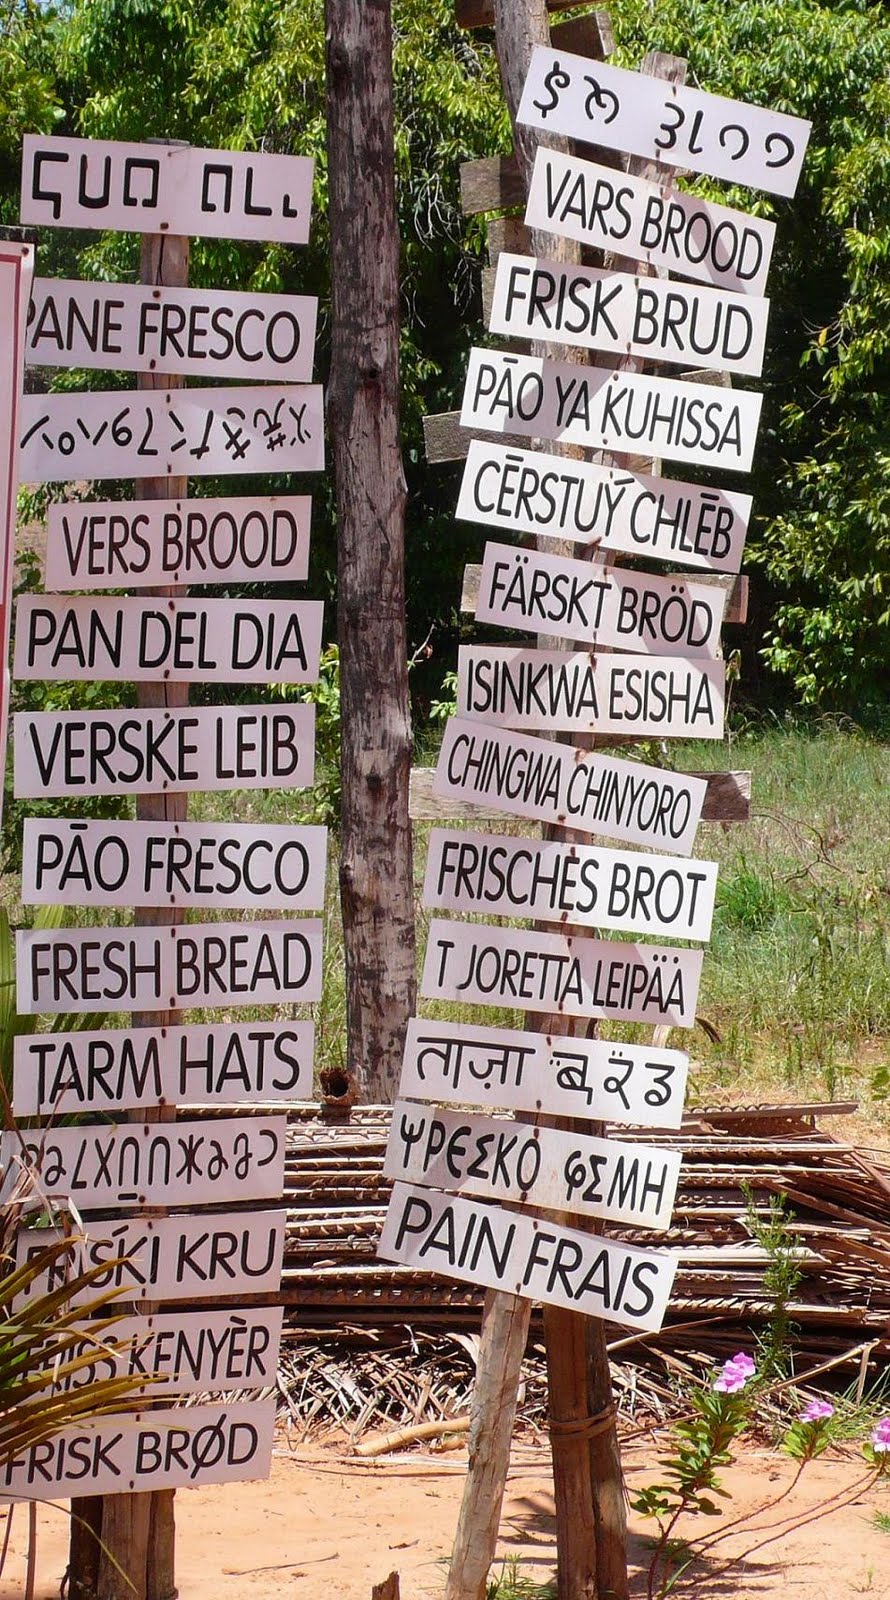 PANE FRESCO
VERS BROOD
PAN DEL DIA
VERSKE LEIB
PĀO FRESCO
FRESH BREAD
TARM HATS
FRIŚKI KRU
FRISS KENYÈR
FRISK BRØD
VARS BROOD
FRISK BRUD
PĀO YA KUHISSA
CĒRSTUÝ CHLĒB
FÄRSKT BRÖD
ISINKWA ESISHA
CHINGWA CHINYORO
FRISCHES BROT
T JORETTA LEIPÄÄ
ताज़ा
ΨΡЄΣΚΟ ΦΣΜΗ
PAIN FRAIS